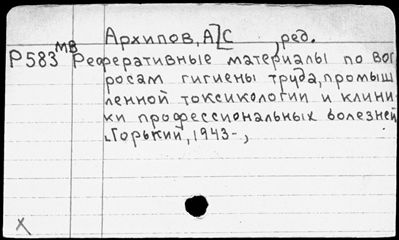 Архипов, А[С ,ред.
Р583 МВ Реферативные материалы по воп
росам гигиены труда, промыш
ленной токсикологии и клини
ки профессиональных болезней
.Горький, 1943-,
X